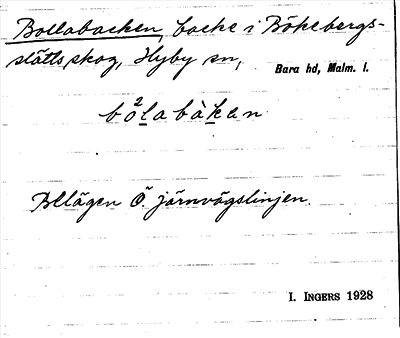 Bollabacken, backe i Bökebergs-
slätts skog, Hyby sn, Bara hd, Malm. l.
bo²labàkan
Belägen Ö. järnvägslinjen.
I. INGERS 1928